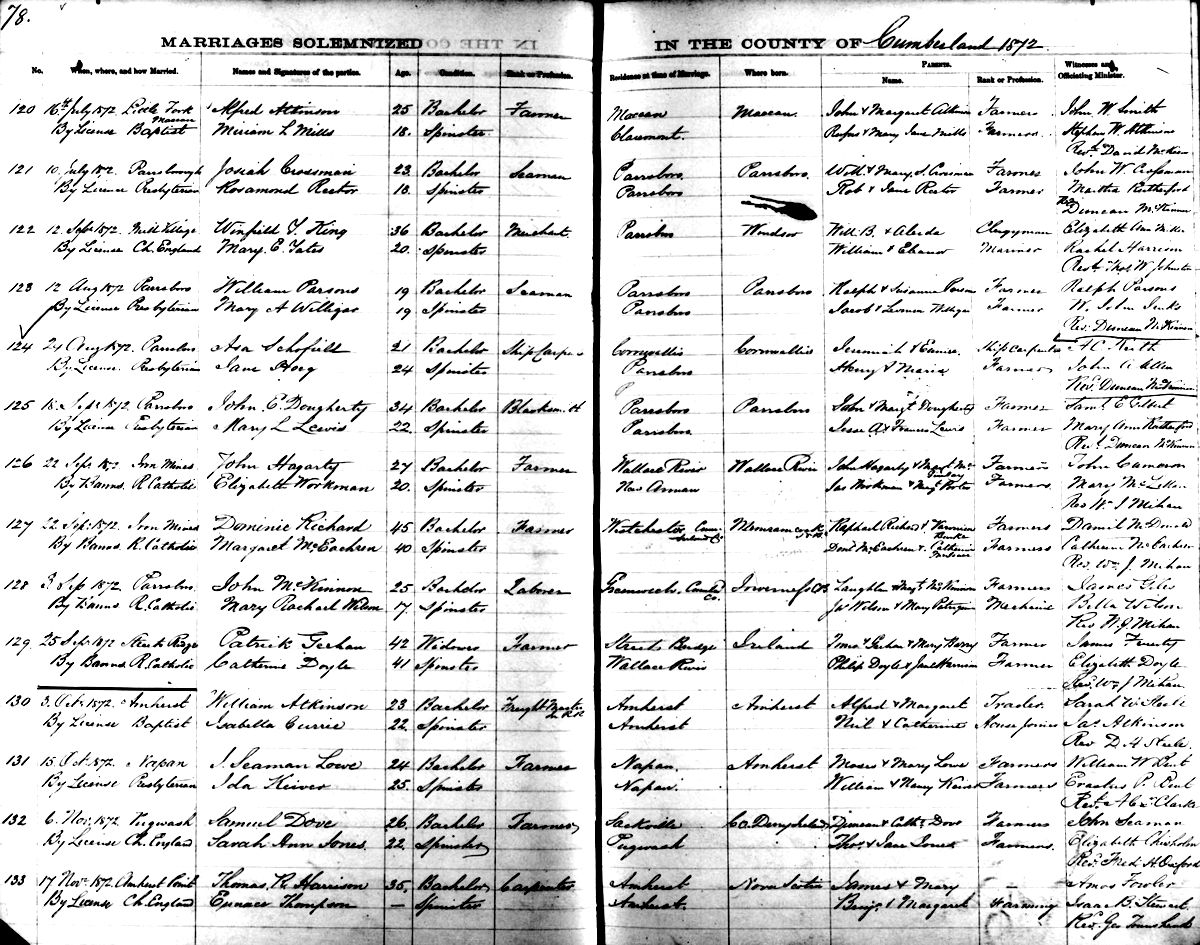 78.
MARRIAGES SOLEMNIZED IN THE COUNTY OF Cumberland 1872.
PARENTS.
No. When, where, and how Married. Names and Signatures of the parties. Age. Condition. Rank or Profession. Residence at time of Marriage. Where born. Name. Rank or Profession. Witnesses and Officiating Minister.
120 16th July 1872 Little Fork Alfred Atkinson 25 Bachelor Farmer Maccan Maccan. John & Margaret Farmers John W. Smith
By License Baptist Miriam L Mills 18. Spinster Claremont. Rufus & Mary Jane Mills Farmers. Stephen W. Atkinson
Revd David
121 10 July 1872. Parrsborough Josiah Crossman 23 Bachelor Seaman Parrsboro. Parrsboro. & Mary. S. Farmer John W
By License Presbyterian Rosamond Rector 18. Spinster Parrsboro Rob & Jane Rector Farmer Martha Rutherford
Rev Duncan McKinnon
122 12 Sept 1872. Mill Village Winfield King 36 Bachelor Merchant. Parrsboro Windsor Will. B. & Clergyman Elizabeth Ann
By License Ch. England Mary E. Yates 20. Spinster William & Eleanor Mariner Rachel Harrison
Revd Thos. W. Johnston
123 12 Aug 1872 Parrsboro William Parsons 19 Bachelor Seaman Parrsboro Parrsboro Ralph & Susanna Farmer Ralph Parsons
By License Presbyterian Mary A Williger 19 Spinster Parrsboro Jacob & Farmer W. John Jenks
Rev. Duncan McKinnon
124 24 Aug 1872. Parrsboro Asa Schofield 21 Bachelor Ship Carpr Cornwallis Cornwallis Jeremiah & Eunice. Ship carpenter A C
By License. Presbyterian Jane Hoeg 24 Spinster Parrsboro Henry & Maria Farmer John A Allen
Rev Duncan McKinnon
125 18. Sept 1872. Parrsboro John E Dougherty 34 Bachelor Blacksmith Parrsboro Parrsboro John & Margt Dougherty Farmer Saml E Elbert
By License Presbyterian Mary L Lewis 22. Spinster Parrsboro. Jesse A & Frances Lewis Farmer Mary Ann Rutherford
Revd Duncan McKinnon
126 22 Sept. 1872 Iron Mines John Hagarty 27 Bachelor Farmer Wallace River Wallace River John Hagarty & Margt Farmers John Cameron
By Banns R. Catholic Elizabeth Workman 20. Spinster New Annan Jas Workman & Margt Porter Farmers. Mary McLellan
Rev Wm J Mihan
127 22 Sept. 1872. Iron Mines Dominic Richard 45 Bachelor Farmer Westchester Raphael Richard & Farmers
By Banns R. Catholic Margaret McEachren 40 Spinster Dond McEachren & Catherine Farmers Catherine McEachren
Rev. Wm. J. Mihan
128 3. Sep 1872. Parrsboro. John McKinnon 25 Bachelor Laborer Inverness Co. & Margt McKinnon Farmers James Giles
By Banns R. Catholic Mary Rachael Wilson 17 Spinster Jos Wilson & Mary Mechanic Bella Wilson
Rev W. J Mihan
129 25 Sept. 1872 Patrick Geehan 42 Widower Farmer Streets Ireland Geehan & Mary Farmer James
By Banns R. Catholic Catherine Doyle 41 Spinster Wallace River Philip Doyle & Farmer Elizabeth Doyle
Revd Wm J Mihan
130 3. Oct. 1872. Amherst William Atkinson 23 Bachelor Freight Master In R R Amherst Amherst Alfred & Margaret Trader. Sarah W Steele
By License Baptist Isabella Currie 22. Spinster Amherst Neil & Catherine House Joiner Jas. Atkinson
Rev. D. A Steele
131 15 Oct. 1872. Napan J. Seaman Lowe 24 Bachelor Farmer Napan. Amherst Moses & Mary Lowe Farmers William W Bent
By License Presbyterian Ida Keiver 25. Spinster Napan. William & Nancy Keiver Farmers Erastus P. Bent
Revd A Clarke
132 6. Nov. 1872. Pugwash Samuel Dove 26. Bachelor Farmer Sackville Co. Derry Ireland Duncan & Cath. Dove Farmers John Seaman
By License Ch. England Sarah Ann Jones 22. Spinster Pugwash Thos. & Jane Jones Farmers. Elizabeth Chisholm
Rev. Fred. H.
133 17 Nov. 1872 Amherst Point Thomas R. Harrison 35. Bachelor Carpenter Amherst Nova Scotia James & Mary Amos Fowler
By License Ch. England Thompson — Spinster Amherst. Benj. & Margaret Farming Isaac B. Stewart.
Rev. Geo Townshend